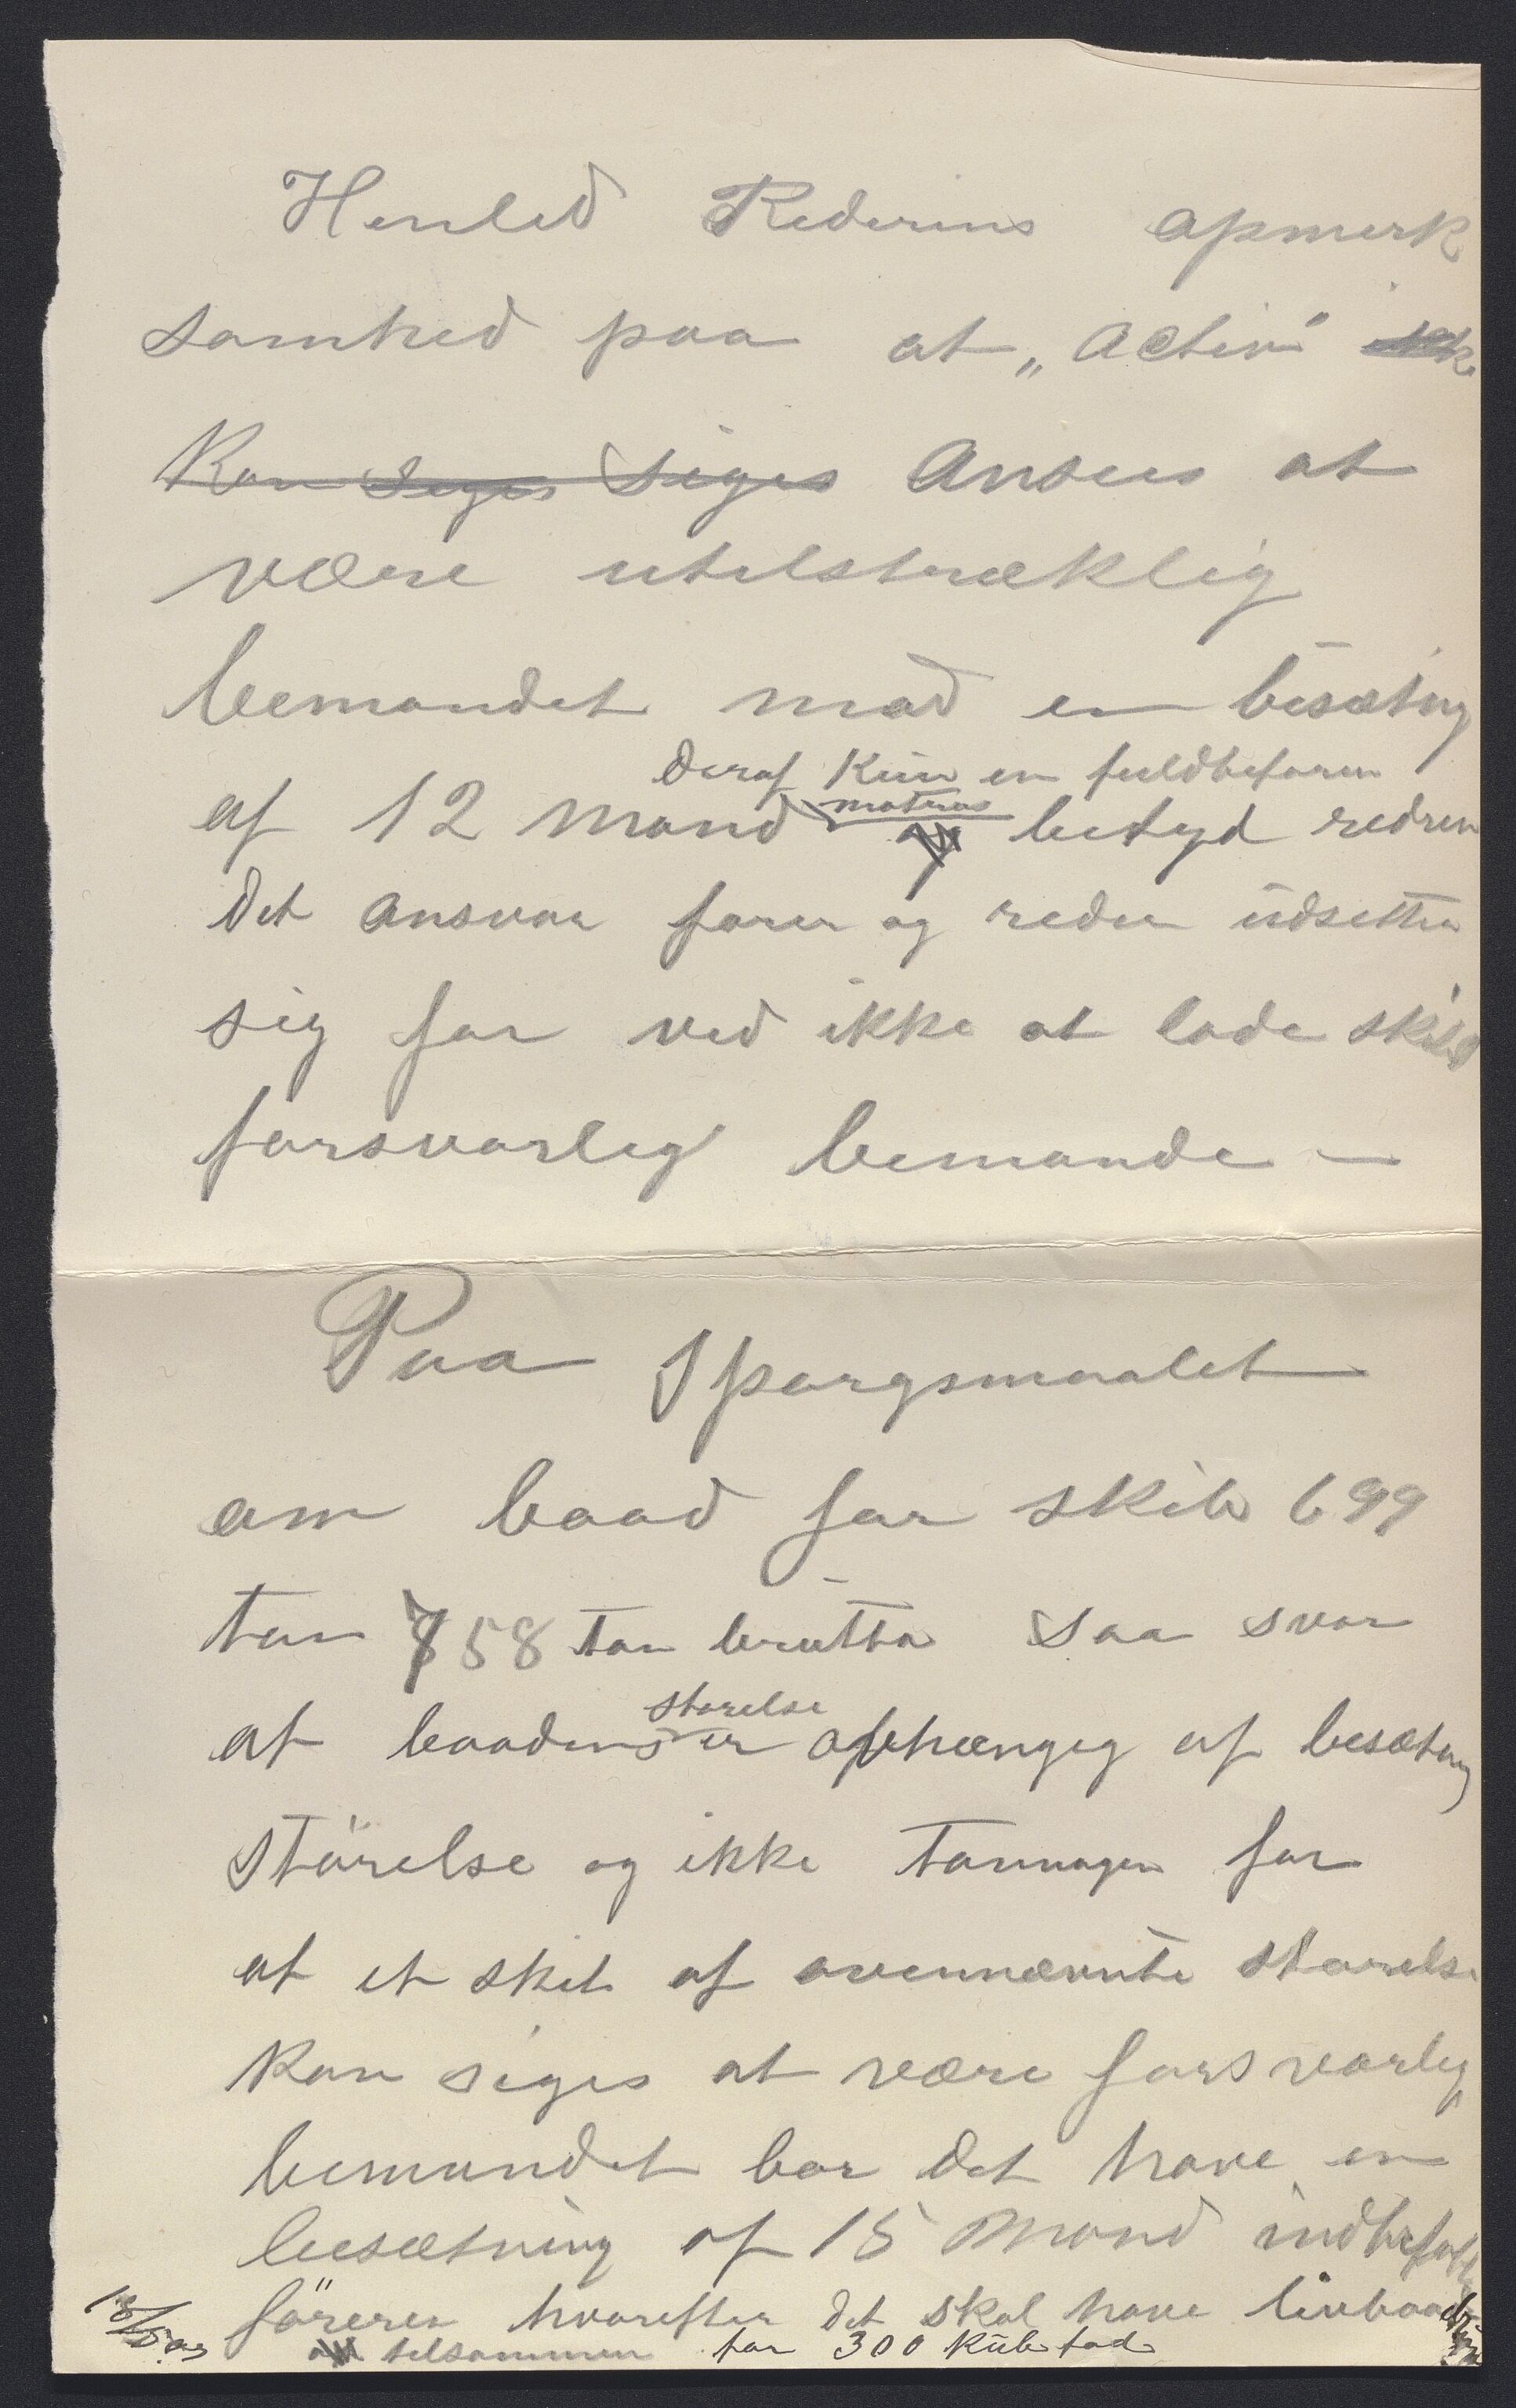 Henled Rederiens opmerk
somhed paa at „Activ"
Kan siges siges Ansees at
være utilstræklig
bemandet mad en besætng
deraf kun en fuldbefaren
af 12 mand matros betyd redren
det ansvar forer og reder udsetter
sig for ved ikke at lade skibet
forsvarlig bemande –
Paa Sporgsmaalet
om baad for skib 699
ton 758 ton brutto saa svar
storelse
at baadens er afhængig af besætng
störelse og ikke tonnagen for
at et skib af ovennævnte storelse
kan siges at være forsvarlig
bemandet bor det have en
besætning af 15 Mand indbefatt
föreren hvorefter det skal have livbaade
18/5 03 tilsammen for 300 kub fod